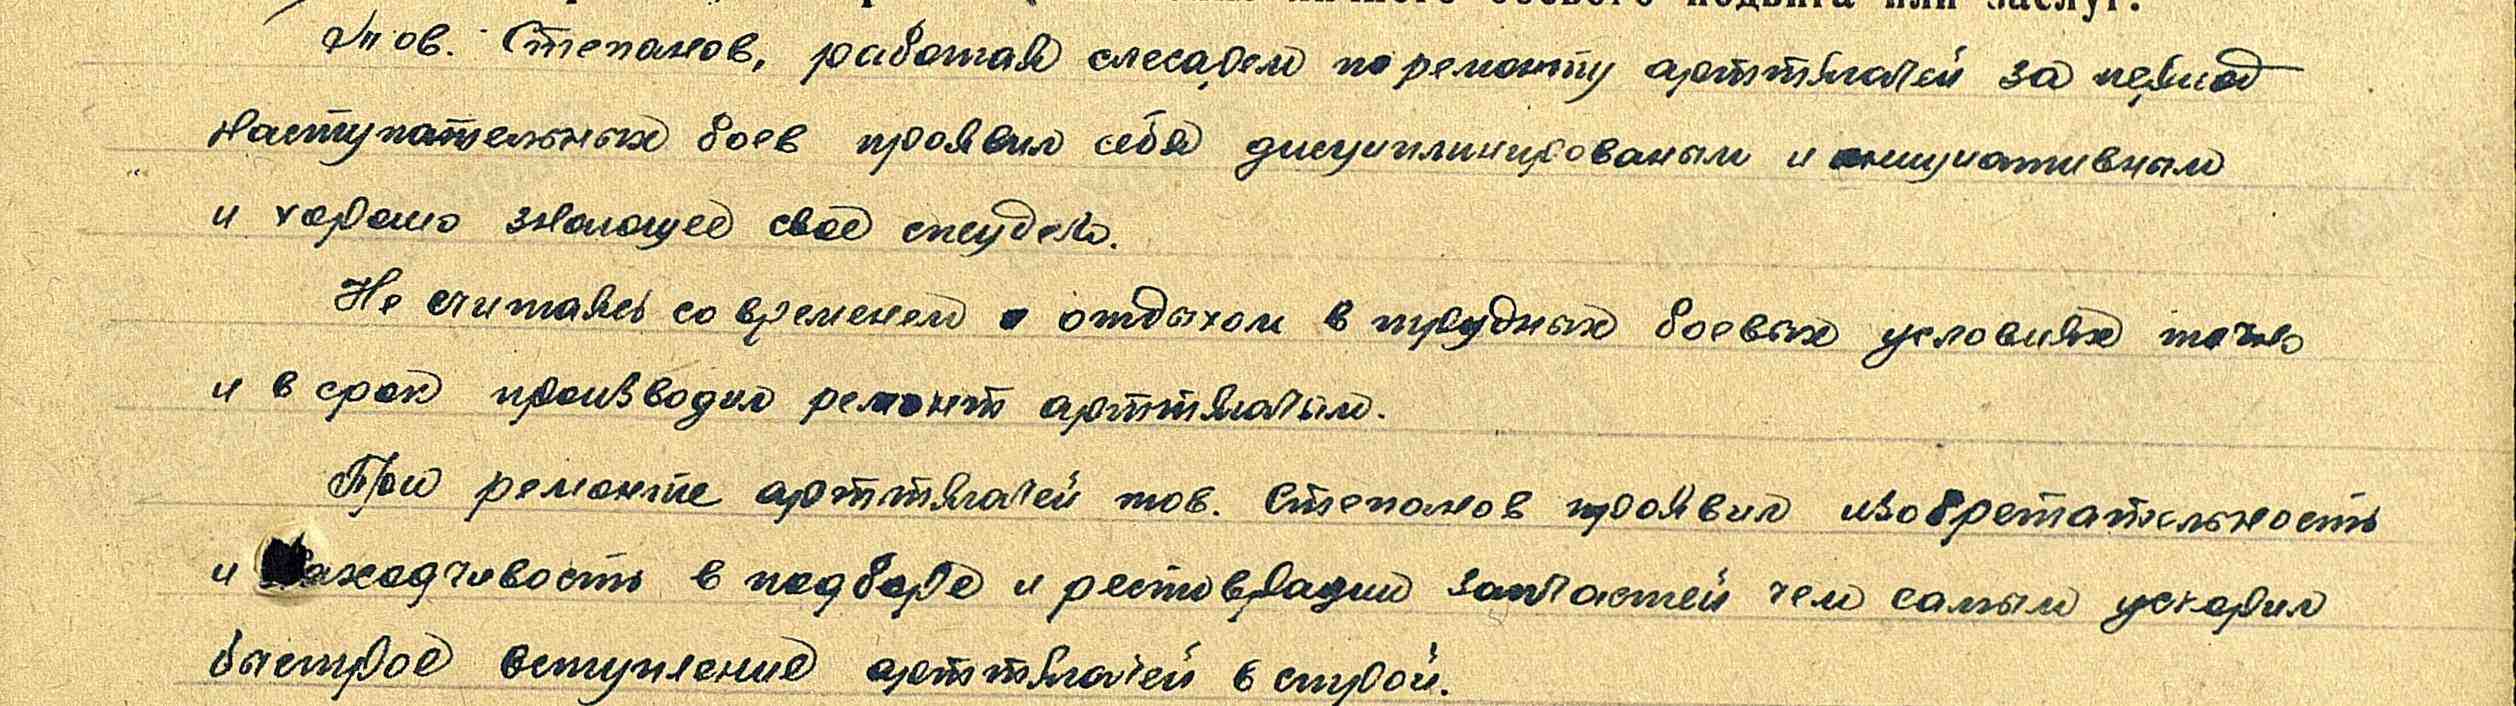 личного боевого подвига или заслуг.
Тов. Степанов, работая слесарем по ремонту арттягачей за период
наступательных боев проявил себя дисциплинированым и инициативным
и хорошо знающее свое
Не считаясь со временем и отдыхом в трудных боевых условиях точно
и в срок производил ремонт арттягачам.
При ремонте арттягачей тов. Степанов проявил изобретательность
и находчивость в подборе и реставрации запчастей чем самым ускорил
быстрое вступление арттягачей в строй.